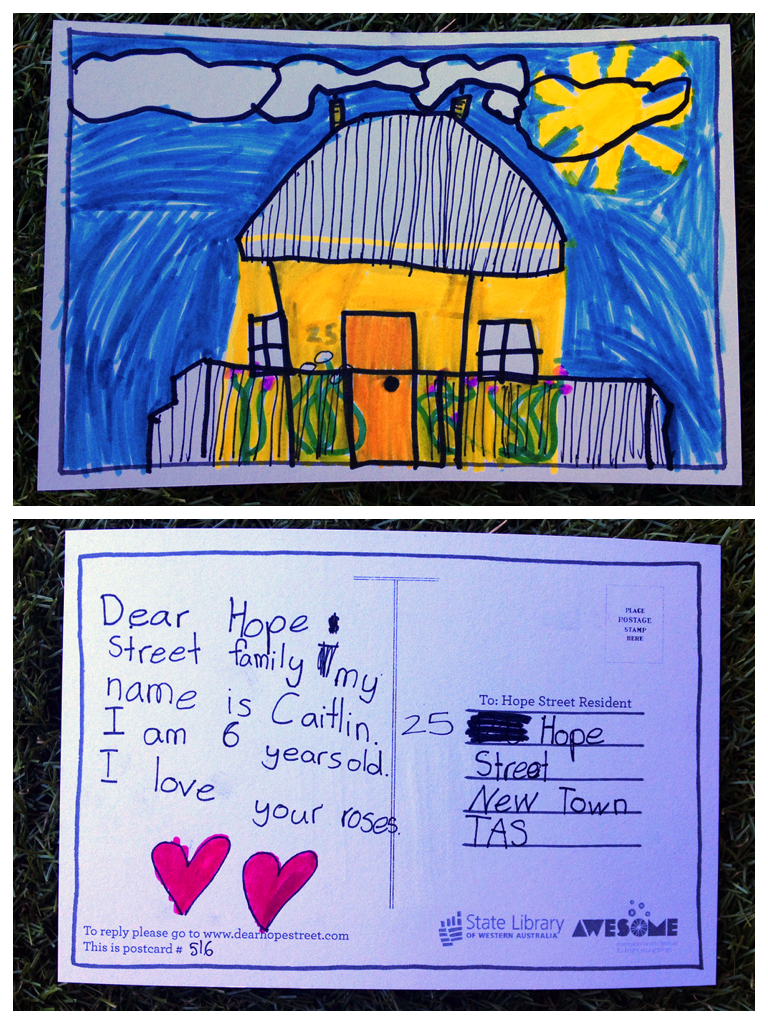 25
Dear Hope
Street family my
name is Caitlin.
I am 6 years old.
I love your roses.
To reply please go to www.dearhopestreet.com
This is postcard # 516
PLACE
POSTAGE
STAMP
HERE
To: Hope Street Resident
25 Hope
Street
New Town
TAS
State Library
OF WESTERN AUSTRALIA
AWESOME